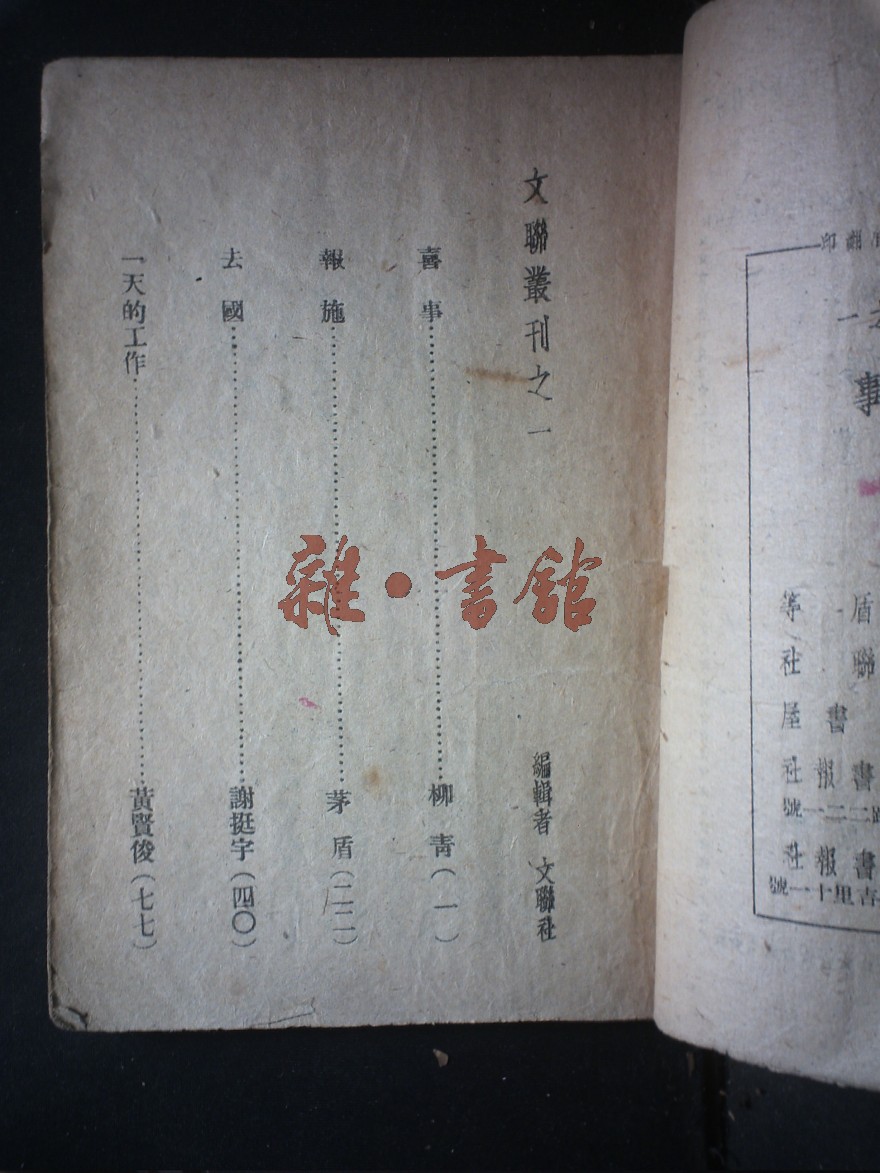 印翻
一
事
盾等
聯社
書屋
書報社
二二一號
書報社
吉里十一號
文聯叢刊之一
編輯者 文聯社
喜事……柳青（一）
報施……茅盾（二二）
去國……謝挺宇（四〇）
一天的工作……黃賢俊（七七）
雜·書館